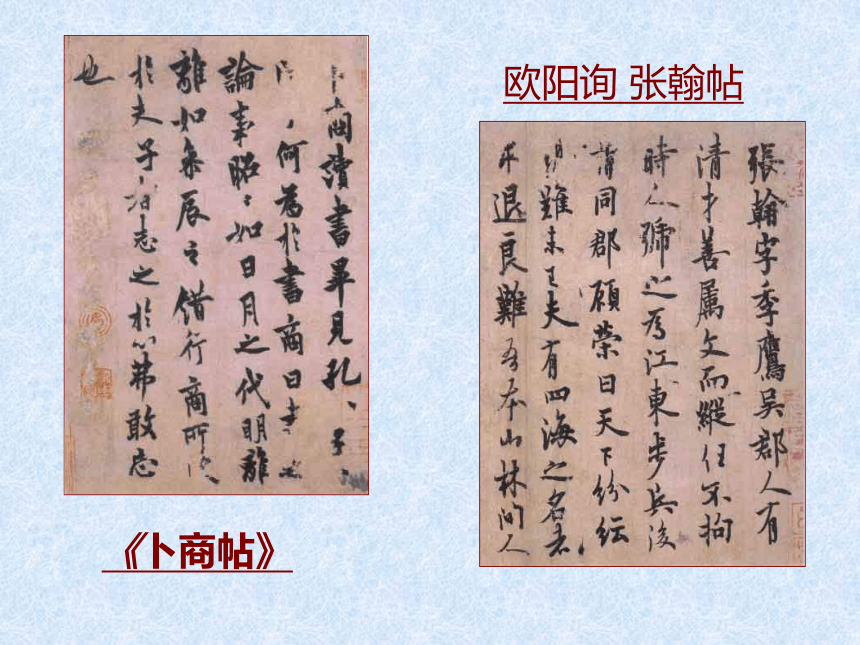 卜商讀書畢見孔〻子〻
〻何為於書商曰書之
論事昭〻如日月之代明離
離如參辰之錯行商所受
於夫子者志之於心弗敢忘
也
《卜商帖》
欧阳询 张翰帖
張翰字季鷹吳郡人有
清才善屬文而縱任不拘
時人號之為江東步兵後
謂同郡顧榮曰天下紛紜
難未已夫有四海之名者
求退良難吾本山林間人